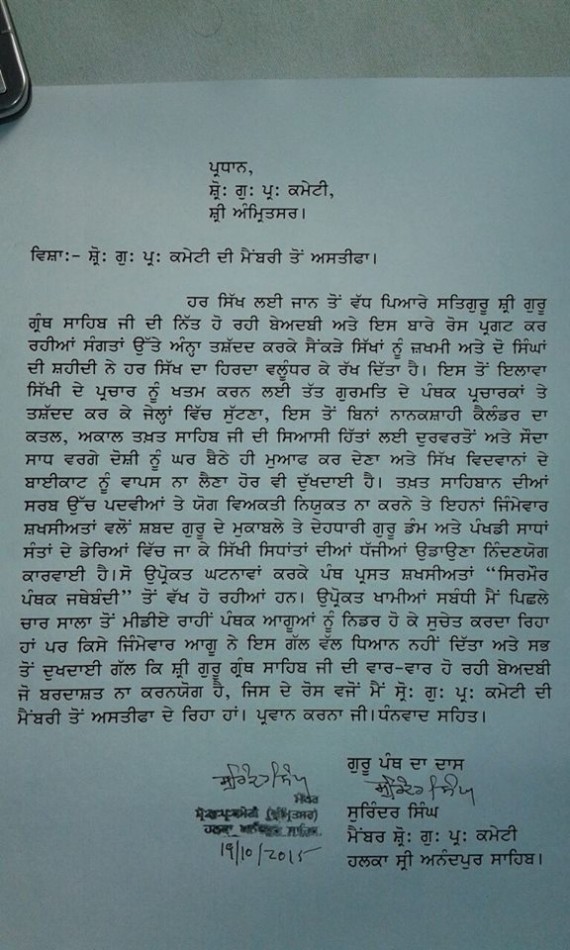 ਪ੍ਰਧਾਨ,
ਸ਼੍ਰੋ: ਗੁ: ਪ੍ਰ: ਕਮੇਟੀ,
ਸ਼੍ਰੀ ਅੰਮ੍ਰਿਤਸਰ।
ਵਿਸ਼ਾ:- ਸ਼੍ਰੋ: ਗੁ: ਪ੍ਰ: ਕਮੇਟੀ ਦੀ ਮੈਂਬਰੀ ਤੋਂ ਅਸਤੀਫਾ।
ਹਰ ਸਿੱਖ ਲਈ ਜਾਨ ਤੋਂ ਵੱਧ ਪਿਆਰੇ ਸਤਿਗੁਰੂ ਸ਼੍ਰੀ ਗੁਰੂ
ਗ੍ਰੰਥ ਸਾਹਿਬ ਜੀ ਦੀ ਨਿੱਤ ਹੋ ਰਹੀ ਬੇਅਦਬੀ ਅਤੇ ਇਸ ਬਾਰੇ ਰੋਸ ਪ੍ਰਗਟ ਕਰ
ਰਹੀਆਂ ਸੰਗਤਾਂ ਉੱਤੇ ਅੰਨ੍ਹਾ ਤਸ਼ੱਦਦ ਕਰਕੇ ਸੈਂਕੜੇ ਸਿੱਖਾਂ ਨੂੰ ਜ਼ਖਮੀ ਅਤੇ ਦੋ ਸਿੰਘਾਂ
ਦੀ ਸ਼ਹੀਦੀ ਨੇ ਹਰ ਸਿੱਖ ਦਾ ਹਿਰਦਾ ਵਲੂੰਧਰ ਕੇ ਰੱਖ ਦਿੱਤਾ ਹੈ। ਇਸ ਤੋਂ ਇਲਾਵਾ
ਸਿੱਖੀ ਦੇ ਪ੍ਰਚਾਰ ਨੂੰ ਖਤਮ ਕਰਨ ਲਈ ਤੱਤ ਗੁਰਮਤਿ ਦੇ ਪੰਥਕ ਪ੍ਰਚਾਰਕਾਂ ਤੇ
ਤਸ਼ੱਦਦ ਕਰ ਕੇ ਜੇਲ੍ਹਾਂ ਵਿੱਚ ਸੁੱਟਣਾ, ਇਸ ਤੋਂ ਬਿਨਾਂ ਨਾਨਕਸ਼ਾਹੀ ਕੈਲੰਡਰ ਦਾ
ਕਤਲ, ਅਕਾਲ ਤਖ਼ਤ ਸਾਹਿਬ ਜੀ ਦੀ ਸਿਆਸੀ ਹਿੱਤਾਂ ਲਈ ਦੁਰਵਰਤੋਂ ਅਤੇ ਸੌਦਾ
ਸਾਧ ਵਰਗੇ ਦੋਸ਼ੀ ਨੂੰ ਘਰ ਬੈਠੇ ਹੀ ਮੁਆਫ ਕਰ ਦੇਣਾ ਅਤੇ ਸਿੱਖ ਵਿਦਵਾਨਾਂ ਦੇ
ਬਾਈਕਾਟ ਨੂੰ ਵਾਪਸ ਨਾ ਲੈਣਾ ਹੋਰ ਵੀ ਦੁੱਖਦਾਈ ਹੈ। ਤਖ਼ਤ ਸਾਹਿਬਾਨ ਦੀਆਂ
ਸਰਬ ਉੱਚ ਪਦਵੀਆਂ ਤੇ ਯੋਗ ਵਿਅਕਤੀ ਨਿਯੁਕਤ ਨਾ ਕਰਨੇ ਤੇ ਇਹਨਾਂ ਜਿੰਮੇਵਾਰ
ਸ਼ਖਸੀਅਤਾਂ ਵਲੋਂ ਸ਼ਬਦ ਗੁਰੂ ਦੇ ਮੁਕਾਬਲੇ ਤੇ ਦੇਹਧਾਰੀ ਗੁਰੂ ਡੰਮ ਅਤੇ ਪੰਖਡੀ ਸਾਧਾਂ
ਸੰਤਾਂ ਦੇ ਡੇਰਿਆਂ ਵਿੱਚ ਜਾ ਕੇ ਸਿੱਖੀ ਸਿਧਾਂਤਾਂ ਦੀਆਂ ਧੱਜੀਆਂ ਉਡਾਉਣਾ ਨਿੰਦਣਯੋਗ
ਕਾਰਵਾਈ ਹੈ।ਸੋ ਉਪ੍ਰੋਕਤ ਘਟਨਾਵਾਂ ਕਰਕੇ ਪੰਥ ਪ੍ਰਸਤ ਸ਼ਖਸੀਅਤਾਂ "ਸਿਰਮੌਰ
ਪੰਥਕ ਜਥੇਬੰਦੀ" ਤੋਂ ਵੱਖ ਹੋ ਰਹੀਆਂ ਹਨ। ਉਪ੍ਰੋਕਤ ਖਾਮੀਆਂ ਸਬੰਧੀ ਮੈਂ ਪਿਛਲੇ
ਚਾਰ ਸਾਲਾ ਤੋਂ ਮੀਡੀਏ ਰਾਹੀਂ ਪੰਥਕ ਆਗੂਆਂ ਨੂੰ ਨਿਡਰ ਹੋ ਕੇ ਸੁਚੇਤ ਕਰਦਾ ਰਿਹਾ
ਹਾਂ ਪਰ ਕਿਸੇ ਜਿੰਮੇਵਾਰ ਆਗੂ ਨੇ ਇਸ ਗੱਲ ਵੱਲ ਧਿਆਨ ਨਹੀਂ ਦਿੱਤਾ ਅਤੇ ਸਭ
ਤੋਂ ਦੁਖਦਾਈ ਗੱਲ ਕਿ ਸ਼੍ਰੀ ਗੁਰੂ ਗ੍ਰੰਥ ਸਾਹਿਬ ਜੀ ਦੀ ਵਾਰ-ਵਾਰ ਹੋ ਰਹੀ ਬੇਅਦਬੀ
ਜੋ ਬਰਦਾਸ਼ਤ ਨਾ ਕਰਨਯੋਗ ਹੈ, ਜਿਸ ਦੇ ਰੋਸ ਵਜੋਂ ਮੈਂ ਸ੍ਰੋ: ਗੁ: ਪ੍ਰ: ਕਮੇਟੀ ਦੀ
ਮੈਂਬਰੀ ਤੋਂ ਅਸਤੀਫਾ ਦੇ ਰਿਹਾ ਹਾਂ। ਪ੍ਰਵਾਨ ਕਰਨਾ ਜੀ।ਧੰਨਵਾਦ ਸਹਿਤ।
ਗੁਰੂ ਪੰਥ ਦਾ ਦਾਸ
ਸੁਰਿੰਦਰ ਸਿੰਘ
ਮੈਂਬਰ ਸ਼੍ਰੋ: ਗੁ: ਪ੍ਰ: ਕਮੇਟੀ
ਹਲਕਾ ਸ੍ਰੀ ਅਨੰਦਪੁਰ ਸਾਹਿਬ।
ਮੈਂਬਰ
19/10/2015